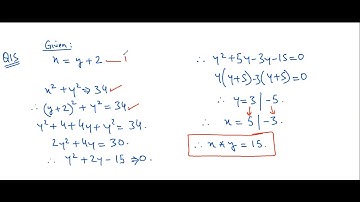 Q15
Given:
x = y + 2 — i
x² + y² ⇒ 34
∴ (y+2)² + y² = 34
y² + 4 + 4y + y² = 34
2y² + 4y = 30.
∴ y² + 2y - 15 ⇒ 0.
∴ y² + 5y - 3y - 15 = 0
y(y+5) - 3(y+5) = 0
∴ y = 3 | -5.
∴ x = 5 | -3.
∴ x * y = 15.